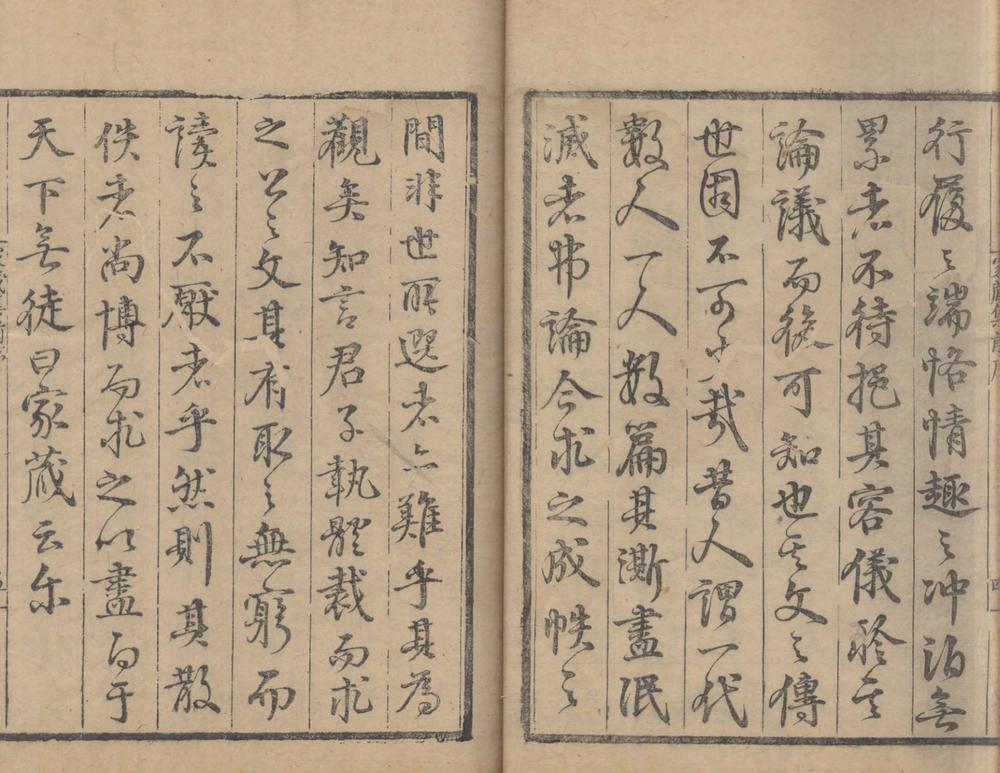 行履之端恪情趣之冲泊無
累者不待挹其容儀聆其
論議而後可知也其文之傳
世固不可少哉昔人謂一代
數人一人數篇其澌盡泯
滅者弗論今求之成帙之
間非世所選者亦難乎其為
觀矣知言君子執體裁而求
之公之文其有取之無窮而
讀之不厭者乎然則其散
佚者尚博而求之以盡白于
天下無徒曰家藏云尔